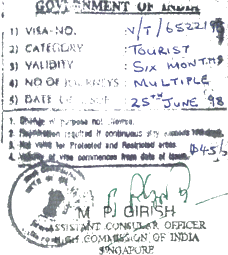 GOVERNMENT OF INDIA
1) VISA-NO. : N/T/652219
2) CATEGORY : TOURIST
3) VALIDITY : SIX MONTHS
4) NO OF JOURNEYS : MULTIPLE
5) DATE OF ISSUE : 25TH JUNE 98
1. Change of purpose not allowed.
2. Registration required if continuous stay exceeds 180 days.
3. Not valid for Protected and Restricted areas.
4. Validity of visa commences from date of issue.
$45/-
M. P. GIRISH
ASSISTANT CONSULAR OFFICER
HIGH COMMISSION OF INDIA
SINGAPORE